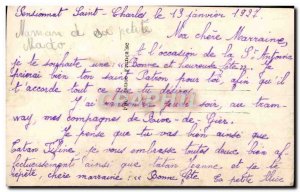 Pensionnat Saint-Charles le 13 janvier 1937.
Maman de
petite
Ma chère Marraine,
A l'occasion de la St Antoine
je te souhaite une : "Bonne et heureuse fête".
prierai bien ton saint Patron pour toi, afin qu'il
t'accorde tout ce que tu désires.
J'ai soir, au tram-
way, mes compagnes de Rive-de-Gier.
Je pense que tu vas bien ainsi que
je vous embrasse toutes deux bien af-
fectueusement ainsi que tatan et te
répète, chère marraine : "Bonne fête. Ta petite